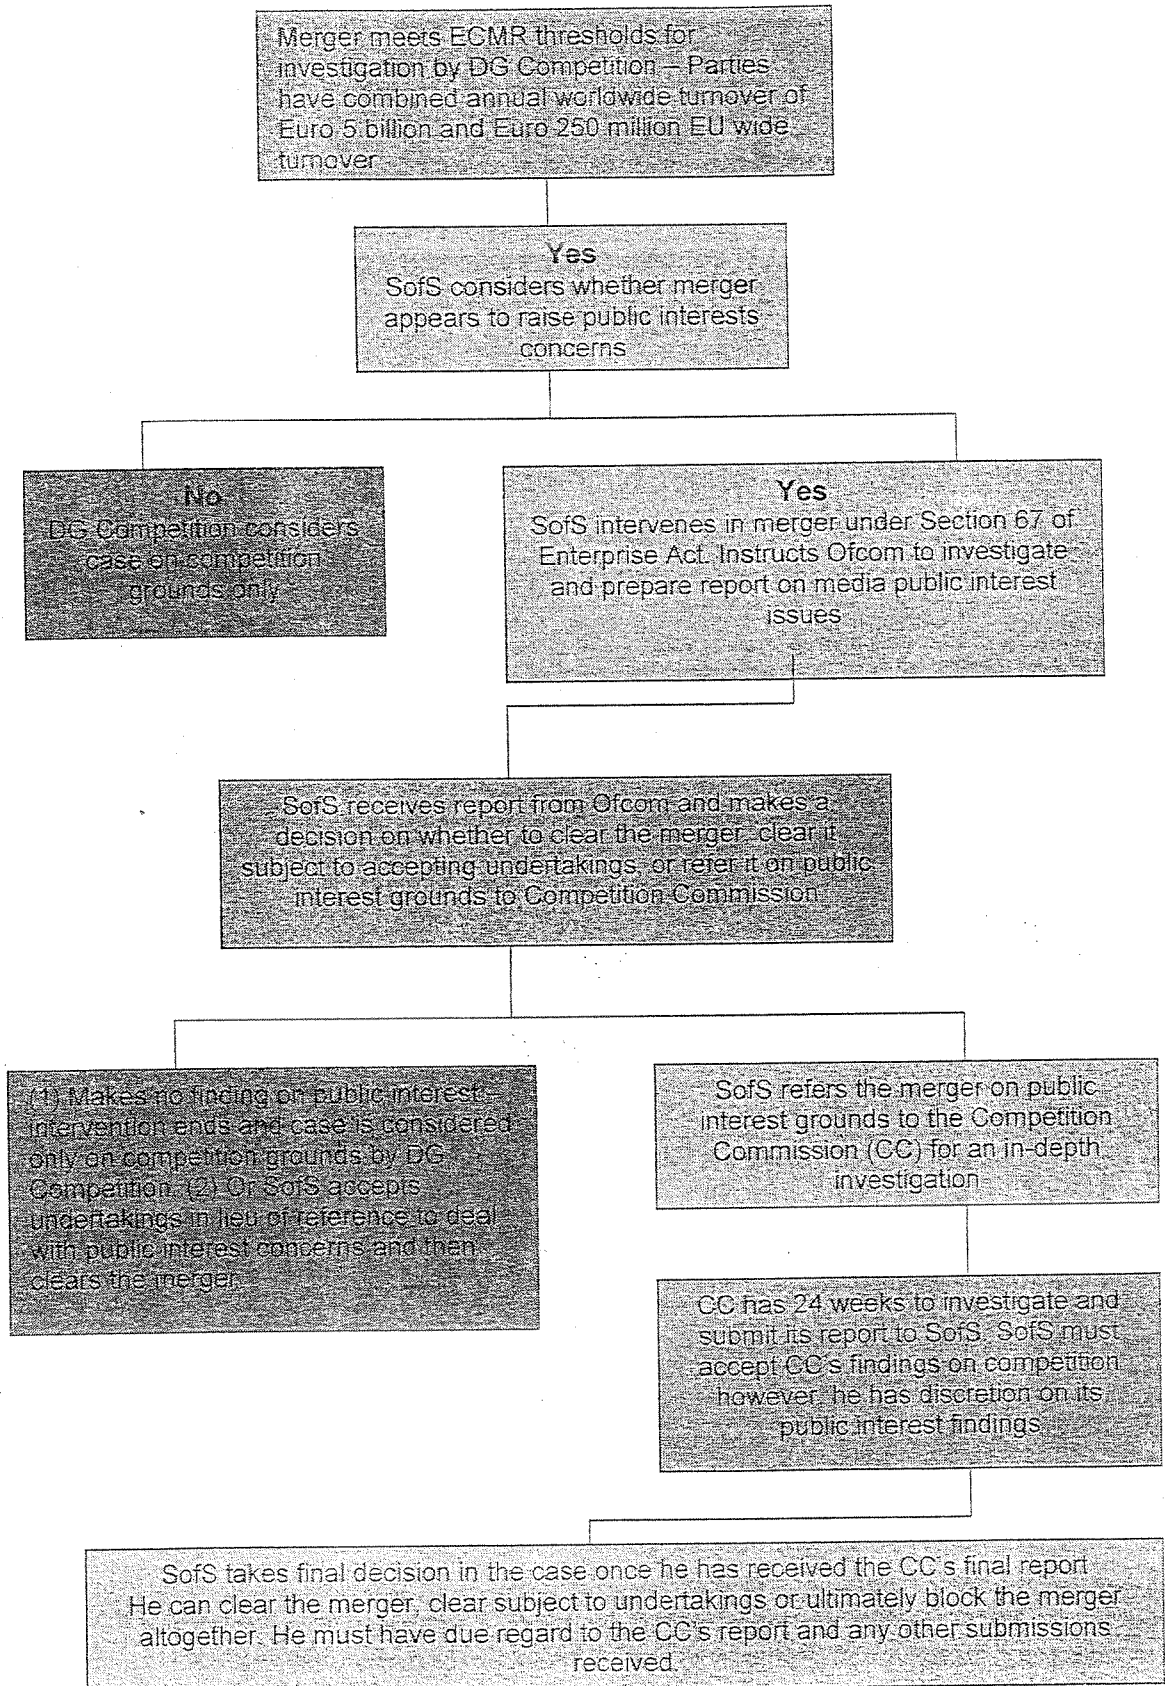 Merger meets ECMR thresholds for
investigation by DG Competition – Parties
have combined annual worldwide turnover of
Euro 5 billion and Euro 250 million EU wide
turnover
Yes
SofS considers whether merger
appears to raise public interests
concerns
No
DG Competition considers
case on competition
grounds only
Yes
SofS intervenes in merger under Section 67 of
Enterprise Act. Instructs Ofcom to investigate
and prepare report on media public interest
issues
SofS receives report from Ofcom and makes a
decision on whether to clear the merger, clear it
subject to accepting undertakings, or refer it on public
interest grounds to Competition Commission
(1) Makes no finding on public interest –
intervention ends and case is considered
only on competition grounds by DG
Competition. (2) Or SofS accepts
undertakings in lieu of reference to deal
with public interest concerns and then
clears the merger.
SofS refers the merger on public
interest grounds to the Competition
Commission (CC) for an in-depth
investigation
CC has 24 weeks to investigate and
submit its report to SofS. SofS must
accept CC's findings on competition
however, he has discretion on its
public interest findings
SofS takes final decision in the case once he has received the CC's final report
He can clear the merger, clear subject to undertakings or ultimately block the merger
altogether. He must have due regard to the CC's report and any other submissions
received.